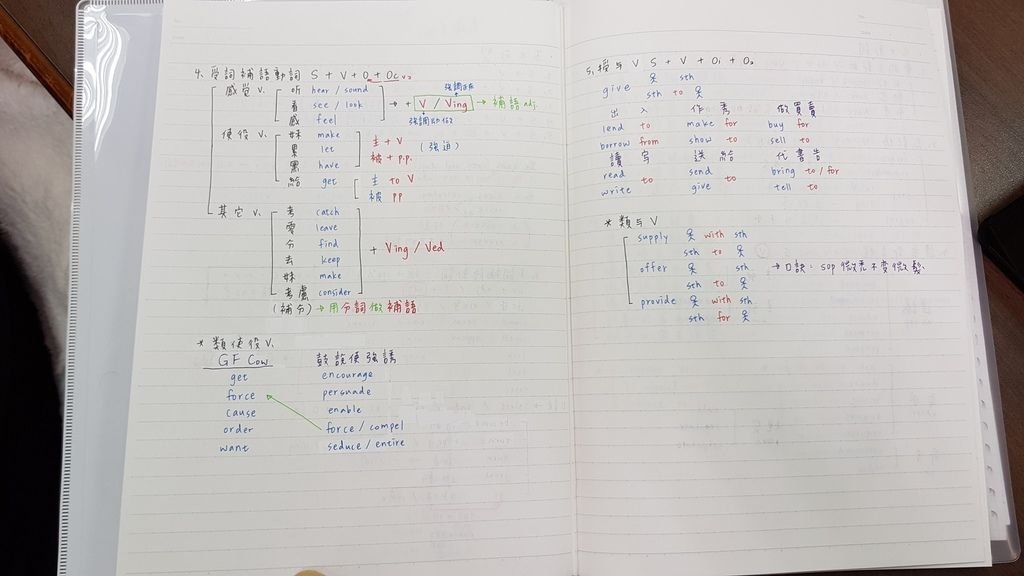 4. 受詞補語動詞 S + V + O + Oc
感覺 V. 听 hear / sound
強調正在
看 see / look → + V / Ving → 補語 adj.
感 feel
強調 做
使役 V. 妹 make 主 + V
累 let (強迫)
罵 have 被 + p.p.
給 get 主 to V
被 pp
其它 V. 考 catch
愛 leave
分 find + Ving / Ved
去 keep
妹 make
考慮 consider
(補分) → 用分詞做補語
* 類使役 V.
GF Cow 鼓說使強誘
get encourage
force persuade
cause enable
order force / compel
want seduce / entire
5. 授与 V S + V + Oi + Oo
give 人 sth
sth to 人
出 入 作 秀 做買賣
lend to make for buy for
borrow from show to sell to
讀 寫 送 給 代 書 告
read to send to bring to / for
write give tell to
* 類与 V
supply 人 with sth
sth to 人
offer 人 sth → 口訣: sop 微禿不要微髮
sth to 人
provide 人 with sth
sth for 人